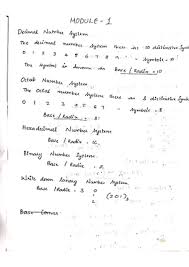 MODULE - 1
Decimal Number System
The decimal number system there is 10 distinctive Symb
0 1 2 3 4 5 6 7 8 9 Symbols - 10
The System is known as Base / Radix = 10
Octal Number System
The Octal number System there is 8 distinctive Symb
0 1 2 3 4 5 6 7 Symbols - 8
Base / Radix = 8
Hexadecimal Number System
Base / Radix = 16
Binary Number System
Base / Radix = 2
Write down binary Number System
Base / Radix = 3 0
2